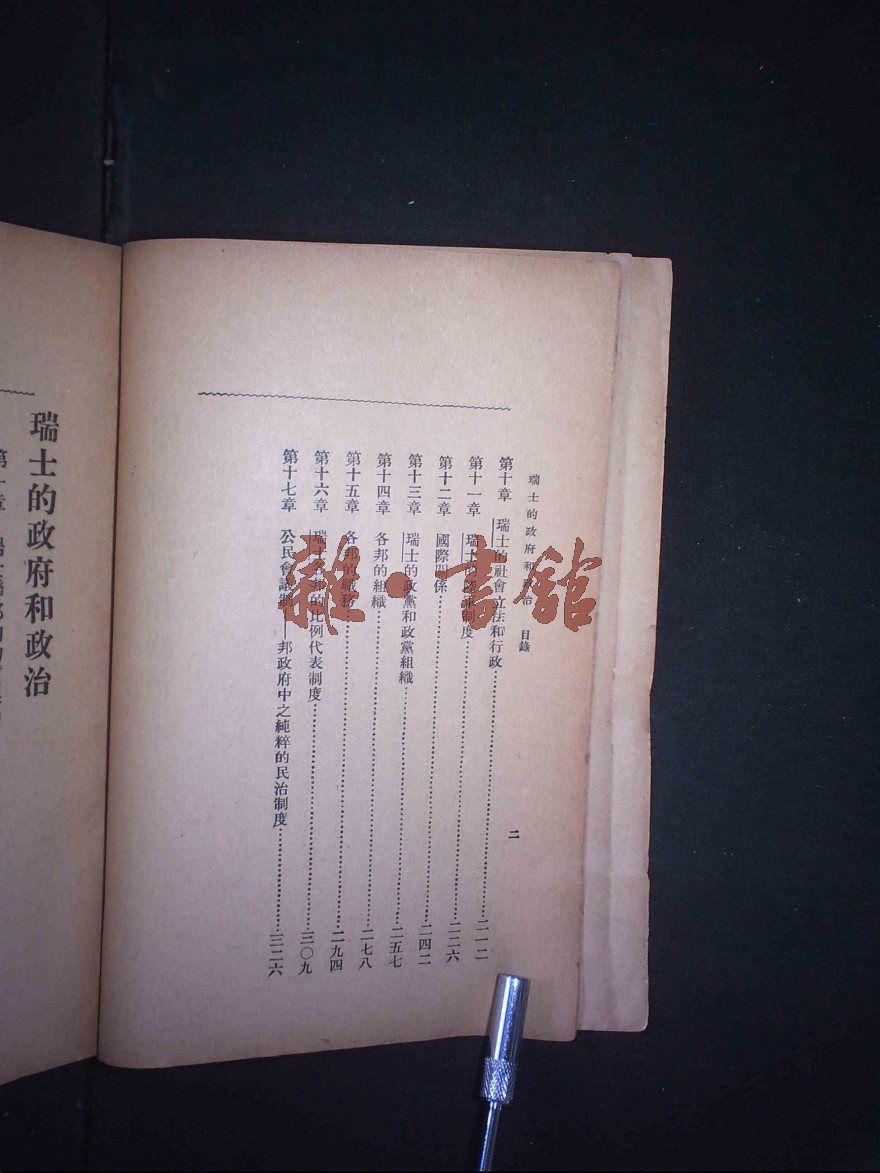 瑞士的政府和政治 目錄
二
第十章 瑞士的社會立法和行政 二一二
第十一章 瑞士的制度 二二六
第十二章 國際關係 二四二
第十三章 瑞士的政黨和政黨組織 二五七
第十四章 各邦的組織 二七八
第十五章 各邦的職務 二九四
第十六章 瑞士各邦的比例代表制度 三〇九
第十七章 公民會議制——邦政府中之純粹的民治制度 三二六
瑞士的政府和政治
雜·書館